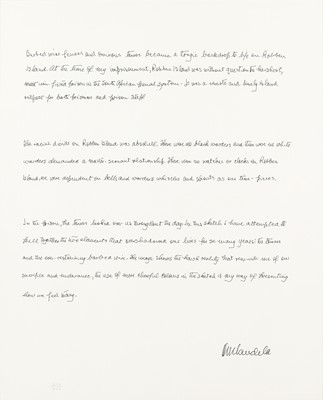 Barbed wire fences and ominous towers became a tragic backdrop to life on Robben
Island. At the time of my imprisonment, Robben Island was without question the harshest,
most iron-fisted prison in the South African penal system. It was a remote and lonely island
outpost for both prisoners and prison staff
The racial divide on Robben Island was absolute. There were no black warders and there were no white
warders demanded a master-servant relationship. There were no watches or clocks on Robben
Island. We were dependent on bells and warders whistles and shouts as our time-pieces.
In the prison, the towers looked over us throughout the day. In this sketch I have attempted to
the two elements that overshadowed our lives for so many years: the tower
and the ever containing barbed wire. The image shows the harsh reality that was
and endurance, the use of more cheerful colours in the sketch is my way of presenting
how we feel today.
NMandela